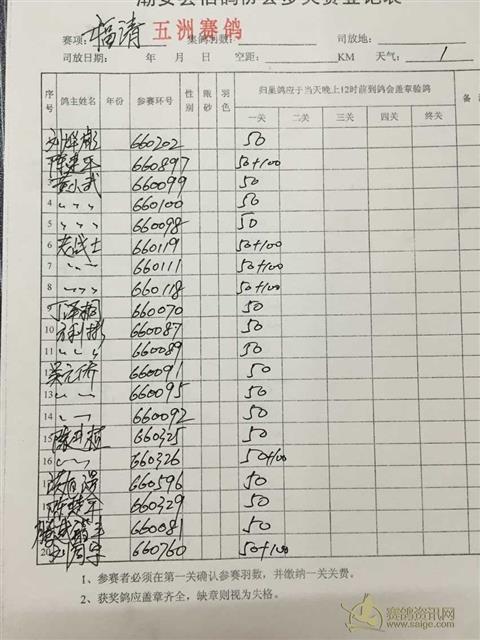 潮安县信鸽协会参关费登记表
赛项: 福清 五洲赛鸽 集鸽羽数: 司放地:
司放日期: 年 月 日 空距: KM 天气: 1
序号 鸽主姓名 年份 参赛环号 性别 眼砂 羽色 归巢鸽应于当天晚上12时前到鸽会盖章验鸽 备
一关 二关 三关 四关 终关
660202 50
陈建平 660897 50+100
黄小武 660099 50
4 〃 〃 〃 660100 50
5 〃 〃 〃 660098 50
6 老战士 660119 50+100
7 〃 〃 660111 50+100
8 〃 〃 〃 660118 50+100
9 丁泽桐 660070 50
10 660087 50
11 〃 〃 〃 660089 50
12 吴元侨 660091 50
13 〃 〃 660095 50
14 〃 〃 660092 50
15 660325 50
16 〃 〃 660326 50+100
660596 50
660329 50
660081 50
20 660760 50+100
1、参赛者必须在第一关确认参赛羽数，并缴纳一关关费。
2、获奖鸽应盖章齐全，缺章则视为失格。
赛鸽资讯网
www.saige.com